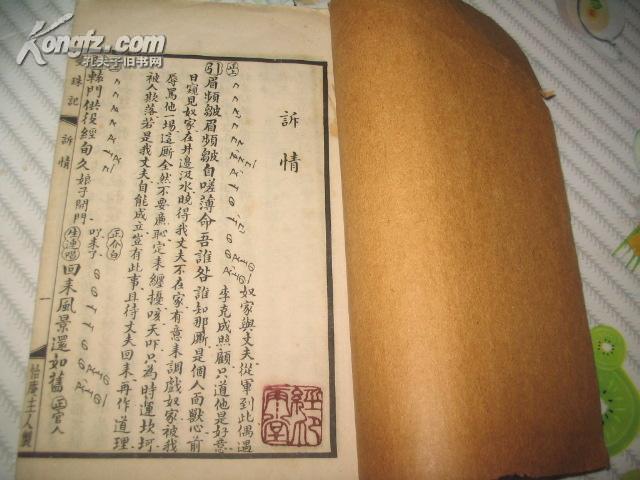 Kongfz.com
孔夫子旧书网
訴情
引眉頻皺眉頻皺自嗟薄命吾誰咎
奴家與丈夫從軍到此偶遇
李克成照顧只道他是好意
誰知那厮是個人面獸心前
日窺見奴家在井邊汲水曉得我丈夫不在家有意来調戲奴家被我
辱罵他一場這厮全然不要廉恥定来纏擾咳天吓只為時運坎坷
被人欺落若是我丈夫自能成立豈有此事且待丈夫回来再作道理
轅門供役經旬久娘子開門
正介白
吖来了
生連唱
回来風景還如舊
官人
珠記
訴情
一
怡庵主人製